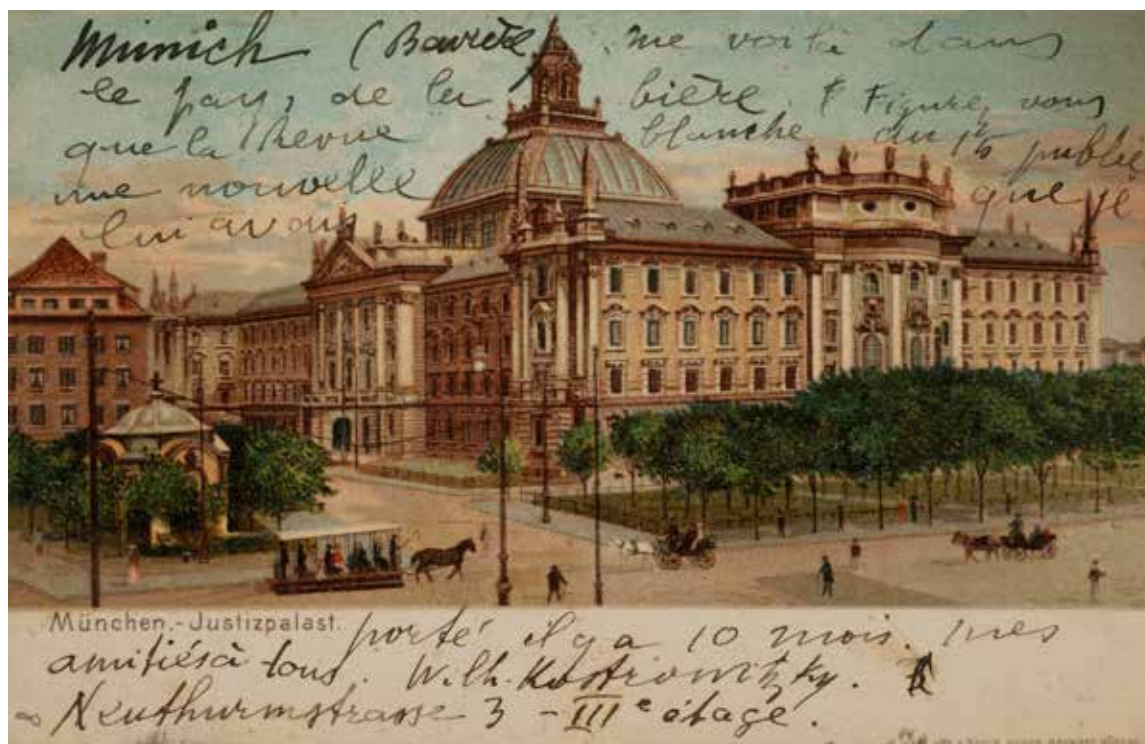 Munich (Bavière) me voilà dans
le pays de la bière. Figurez vous
que la Revue blanche du 15 publie
une nouvelle que je
lui avais
München.-Justizpalast.
porté il y a 10 mois. mes
amitiés à tous. Wilh. Kostrowitzky.
Neuthurmstrasse 3 - III e étage.